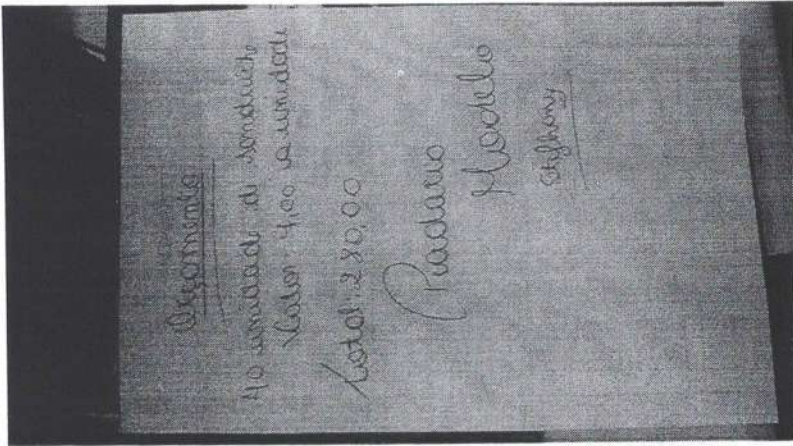 Orçamento
40 unidade di sanduiche
Valor: 7,00 a unidade
Total: 280,00
Padaria
Modelo